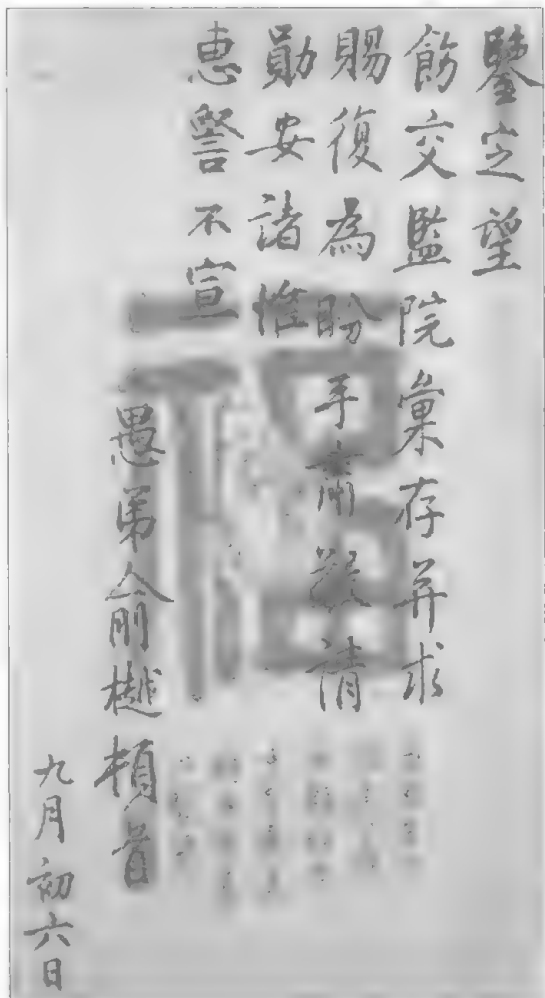 鑒定望
飭交監院彙存并求
賜復為盼手肅敬請
勛安諸惟
惠詧不宣
愚弟俞樾頓首
九月初六日